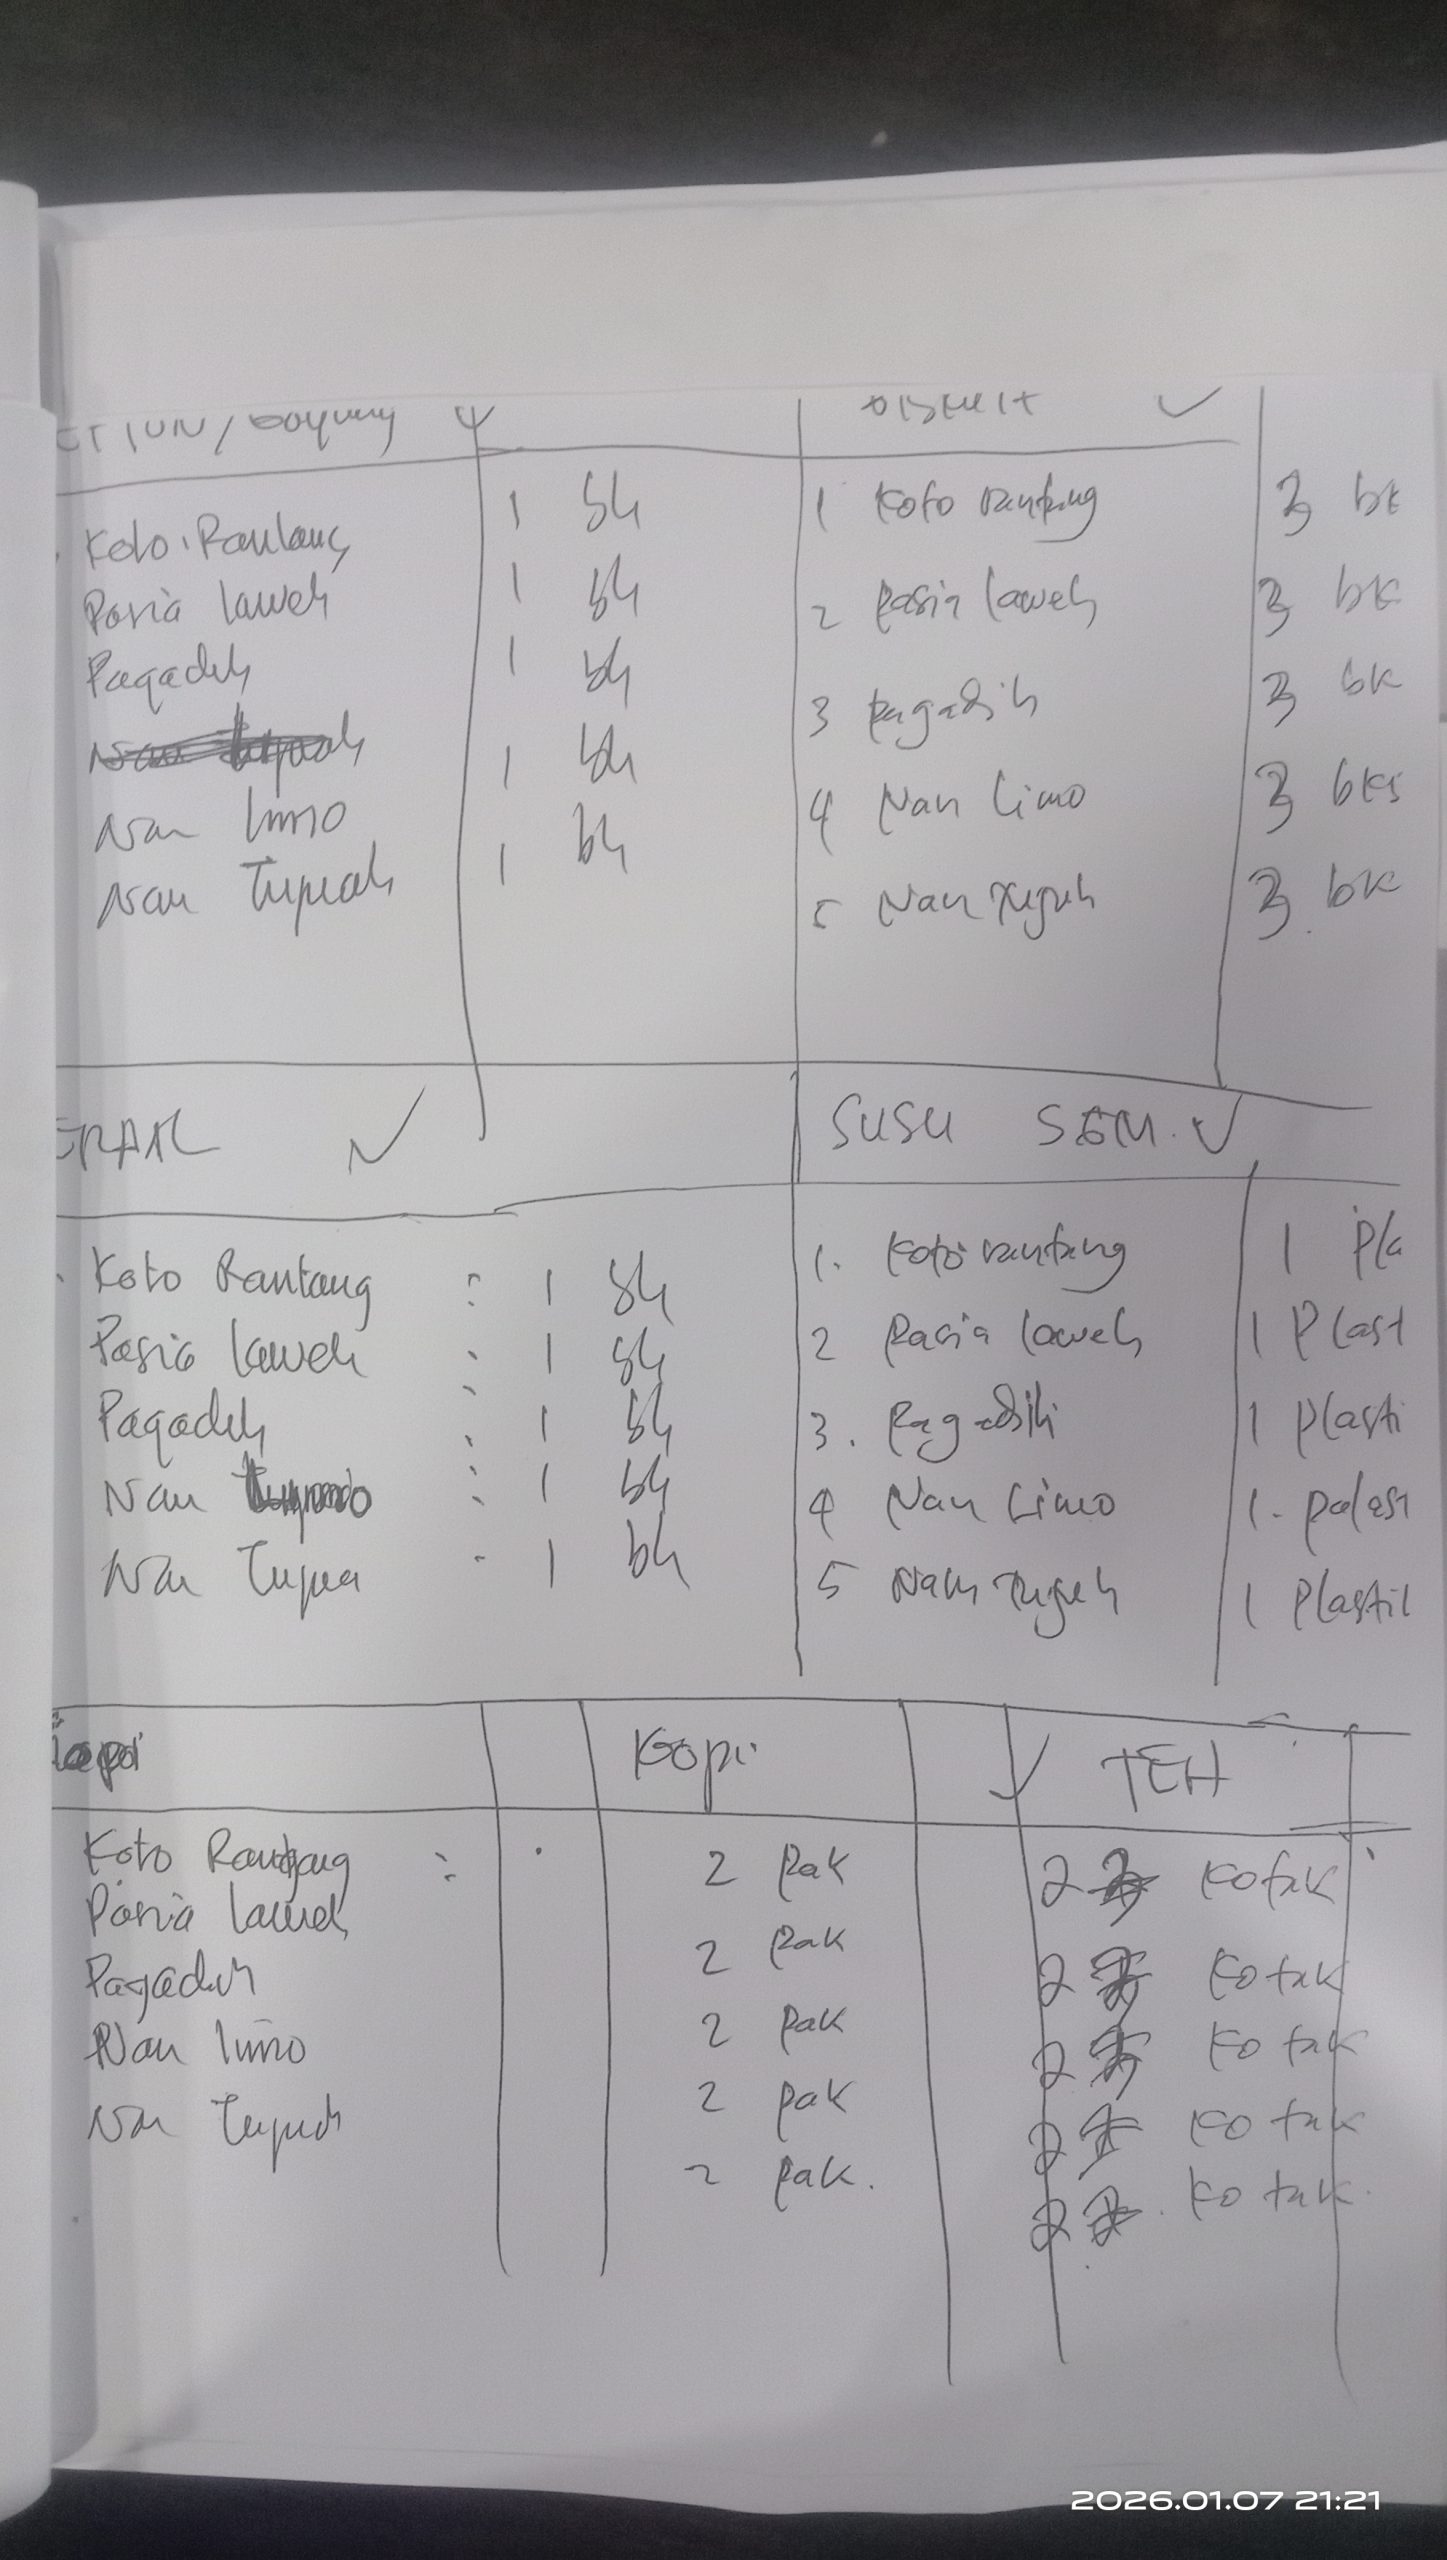 Koto Rantang 1 bh
Pasia laweh 1 bh
Pagadih 1 bh
1 bh
Nan limo 1 bh
Nan Tujuah
1 Koto rantang 3 bk
2 Pasia laweh 3 bk
3 Pagadih 3 bk
4 Nan Limo 3 bks
5 Nan Tujuh 3 bk
SUSU SGM
Koto Rantang : 1 bh
Pasia laweh : 1 bh
Pagadih : 1 bh
Nan : 1 bh
Nan Tujua : 1 bh
1. Koto rantang 1 Pla
2 Pasia laweh 1 Plast
3. Pagadih 1 Plasti
4 Nan Limo 1. palast
5 Nan Tujuh 1 Plastik
Kopi TEH
Koto Rantang : 2 Pak 2 Kotak
Pasia laweh 2 Pak 2 Kotak
Pagadih 2 Pak 2 Kotak
Nan limo 2 pak 2 Kotak
Nan Tujuh 2 Pak. 2 Kotak.
2026.01.07 21:21